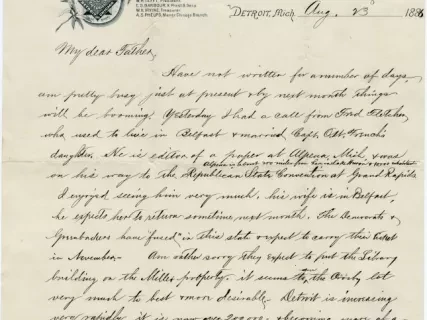 E.S. BARBOUR,
Treasurer
A.S. PHELPS, Manager Chicago Branch
DETROIT, Mich. Aug. 23 1886
My dear Father,
Have not written for a number of days,
am pretty busy just at present & by next month things
will be booming. Yesterday I had a call from Fred Fletcher
who used to live in Belfast & married Capt.
daughter. He is editor of a paper at Alpena, Mich. & was
Alpena is about
on his way to the Republican State Convention at Grand Rapids
I enjoyed seeing him very much, his wife is in Belfast,
he expects her to return sometime next month. The Democrats &
Greenbackers have "fused" in this state & expect to carry this ticket
in November. Am rather sorry they expect to put the Library
building on the Miller property. it seems to, the lot
very much the best & more desirable. Detroit is increasing
very rapidly it is now over 200.000 & becoming more of a